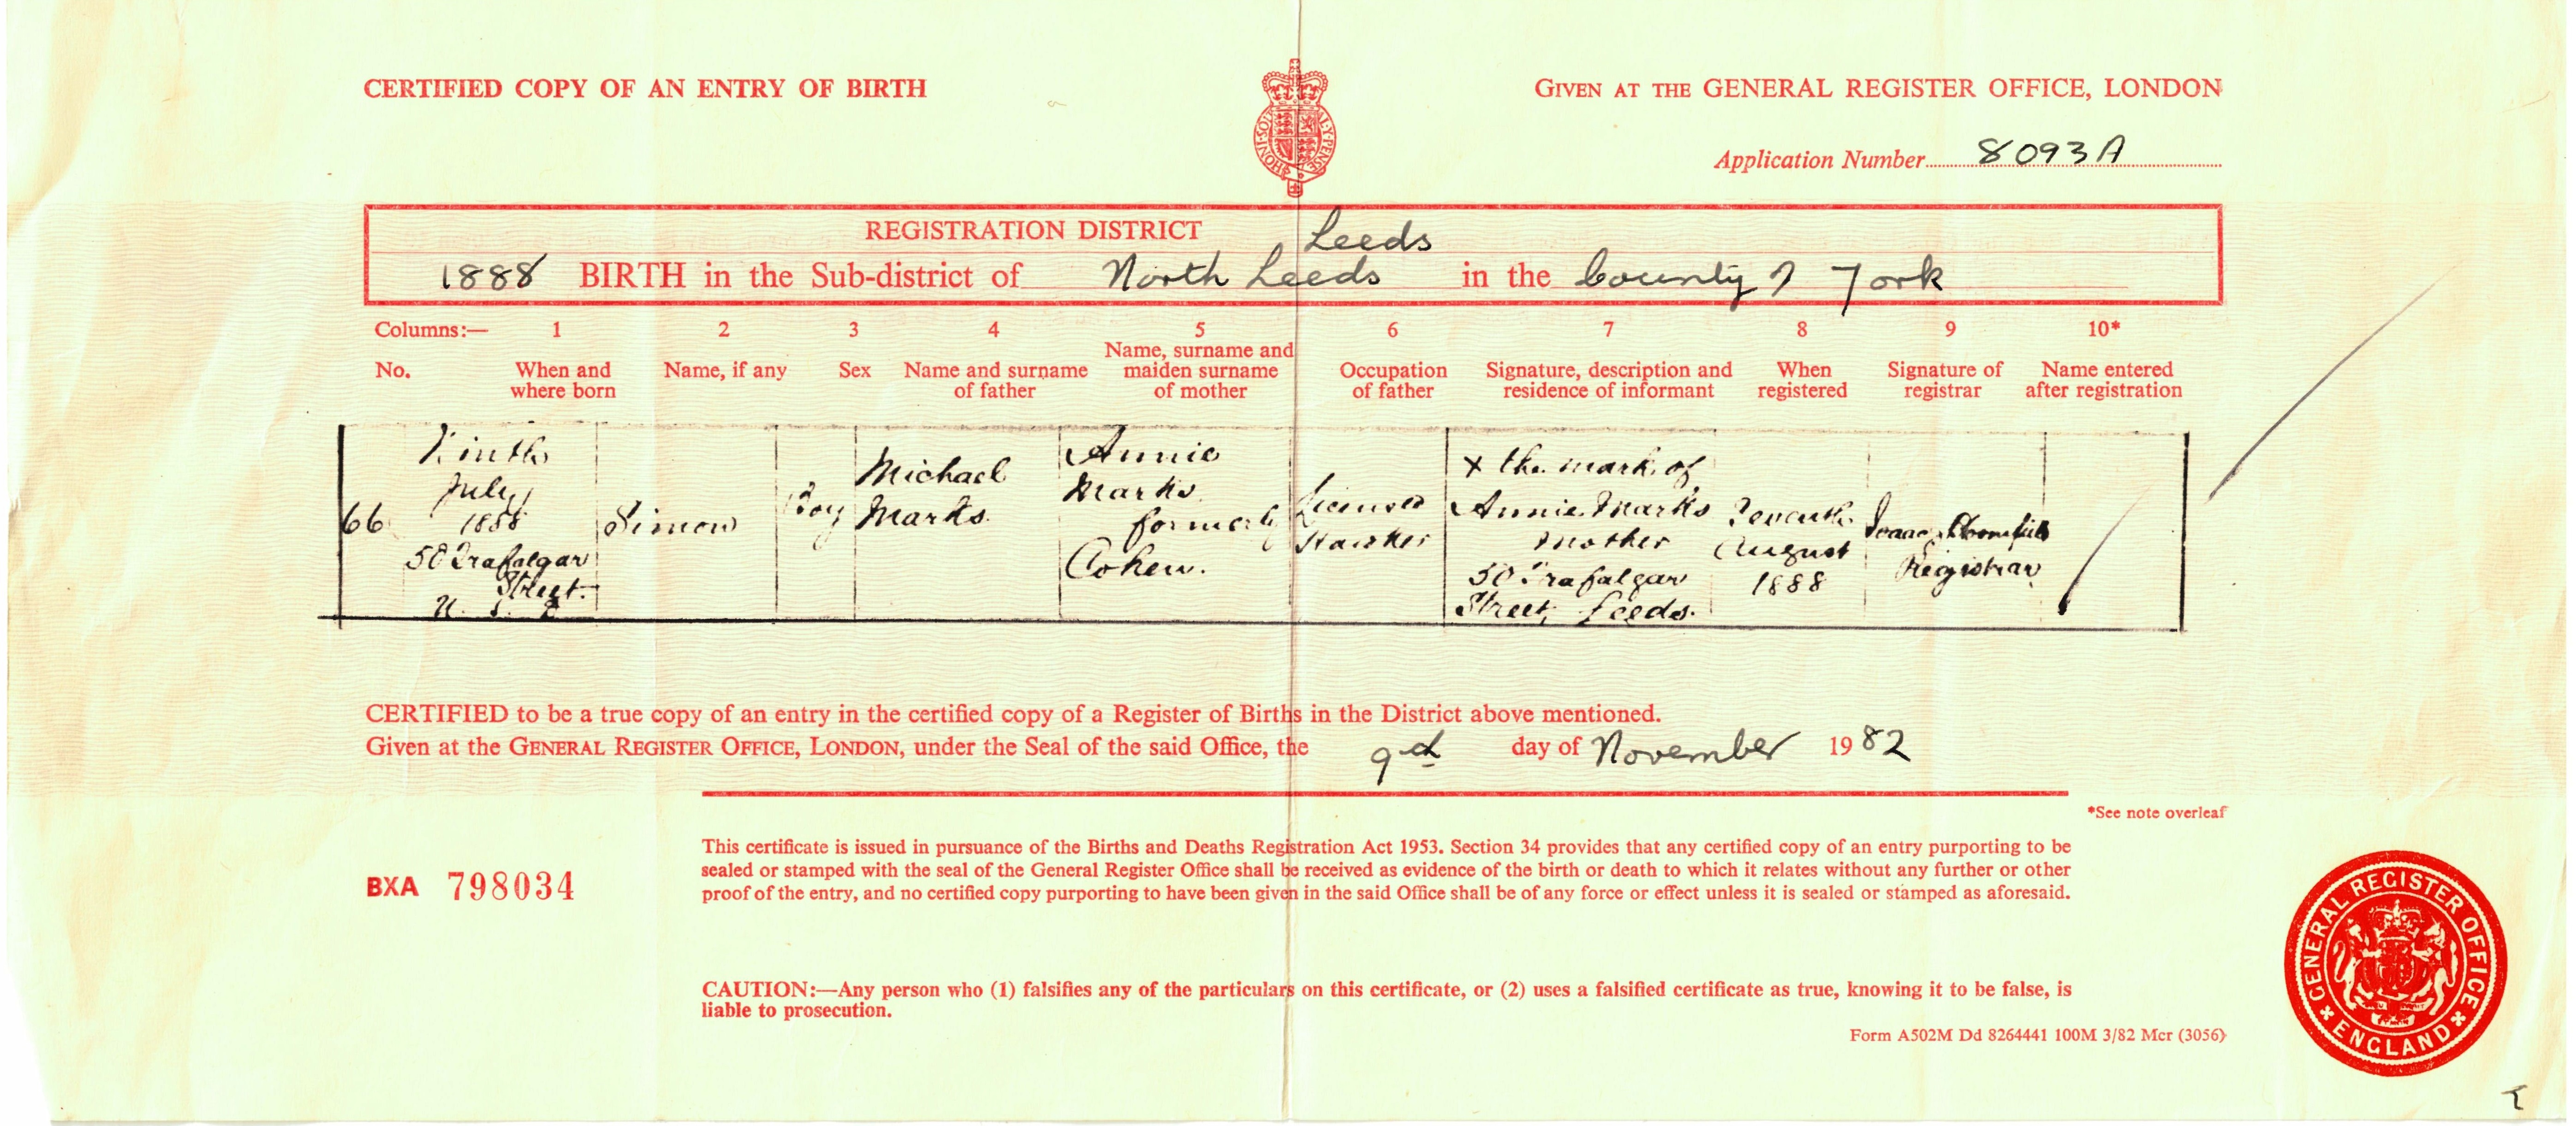 CERTIFIED COPY OF AN ENTRY OF BIRTH
GIVEN AT THE GENERAL REGISTER OFFICE, LONDON
Application Number 8093A
REGISTRATION DISTRICT Leeds
1888 BIRTH in the Sub-district of North Leeds in the County of York
Columns:— 1 2 3 4 5 6 7 8 9 10*
No.
When and
where born
Name, if any
Sex
Name and surname
of father
Name, surname and
maiden surname
of mother
Occupation
of father
Signature, description and
residence of informant
When
registered
Signature of
registrar
Name entered
after registration
66
Ninth
July
1888
50 Trafalgar
Street.
Simon
Boy
Michael
Marks
Annie
Marks
formerly
Cohen.
Licensed
Hawker
X the mark of
Annie Marks
Mother
50 Trafalgar
Street, Leeds.
Seventh
August
1888
Isaac
Registrar
CERTIFIED to be a true copy of an entry in the certified copy of a Register of Births in the District above mentioned.
Given at the GENERAL REGISTER OFFICE, LONDON, under the Seal of the said Office, the 9th day of November 1982
*See note overleaf
BXA 798034
This certificate is issued in pursuance of the Births and Deaths Registration Act 1953. Section 34 provides that any certified copy of an entry purporting to be
sealed or stamped with the seal of the General Register Office shall be received as evidence of the birth or death to which it relates without any further or other
proof of the entry, and no certified copy purporting to have been given in the said Office shall be of any force or effect unless it is sealed or stamped as aforesaid.
CAUTION:—Any person who (1) falsifies any of the particulars on this certificate, or (2) uses a falsified certificate as true, knowing it to be false, is
liable to prosecution.
Form A502M Dd 8264441 100M 3/82 Mcr (3056)
GENERAL REGISTER OFFICE
ENGLAND